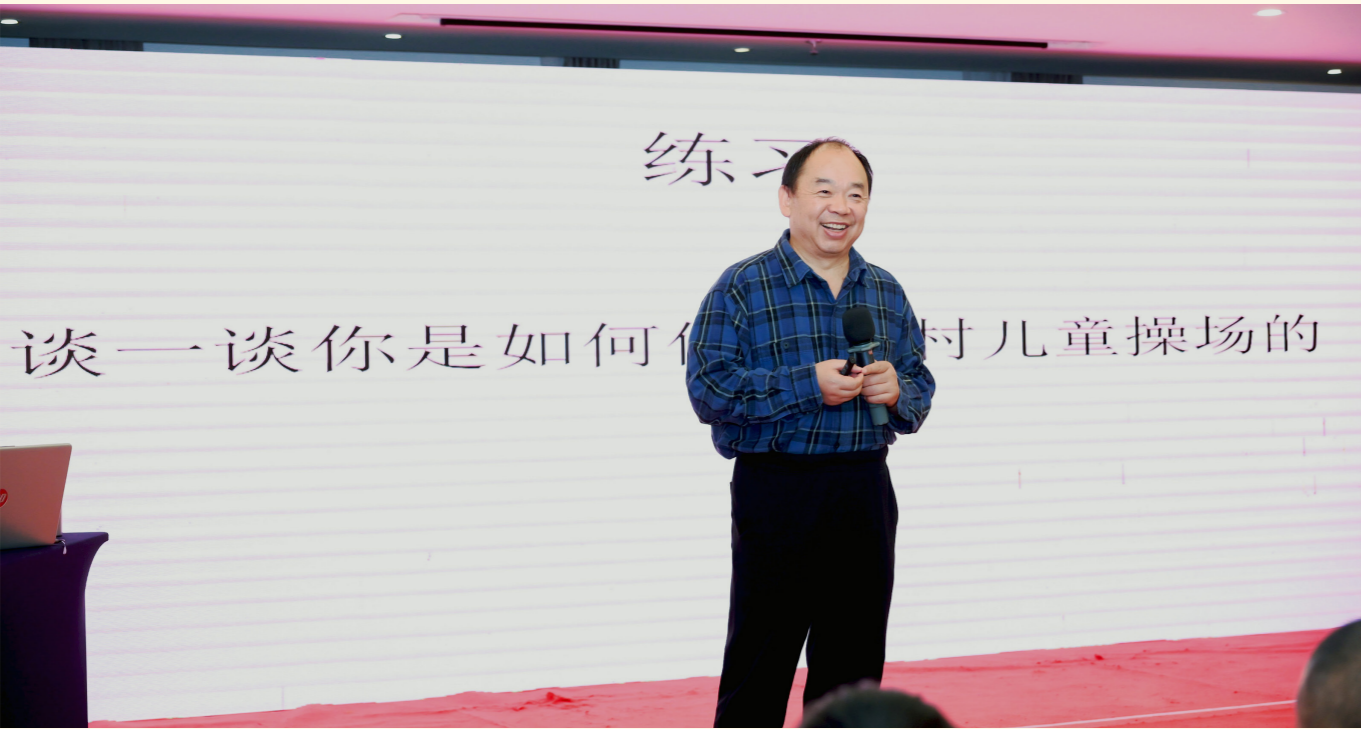 练习
谈一谈你是如何 村儿童操场的